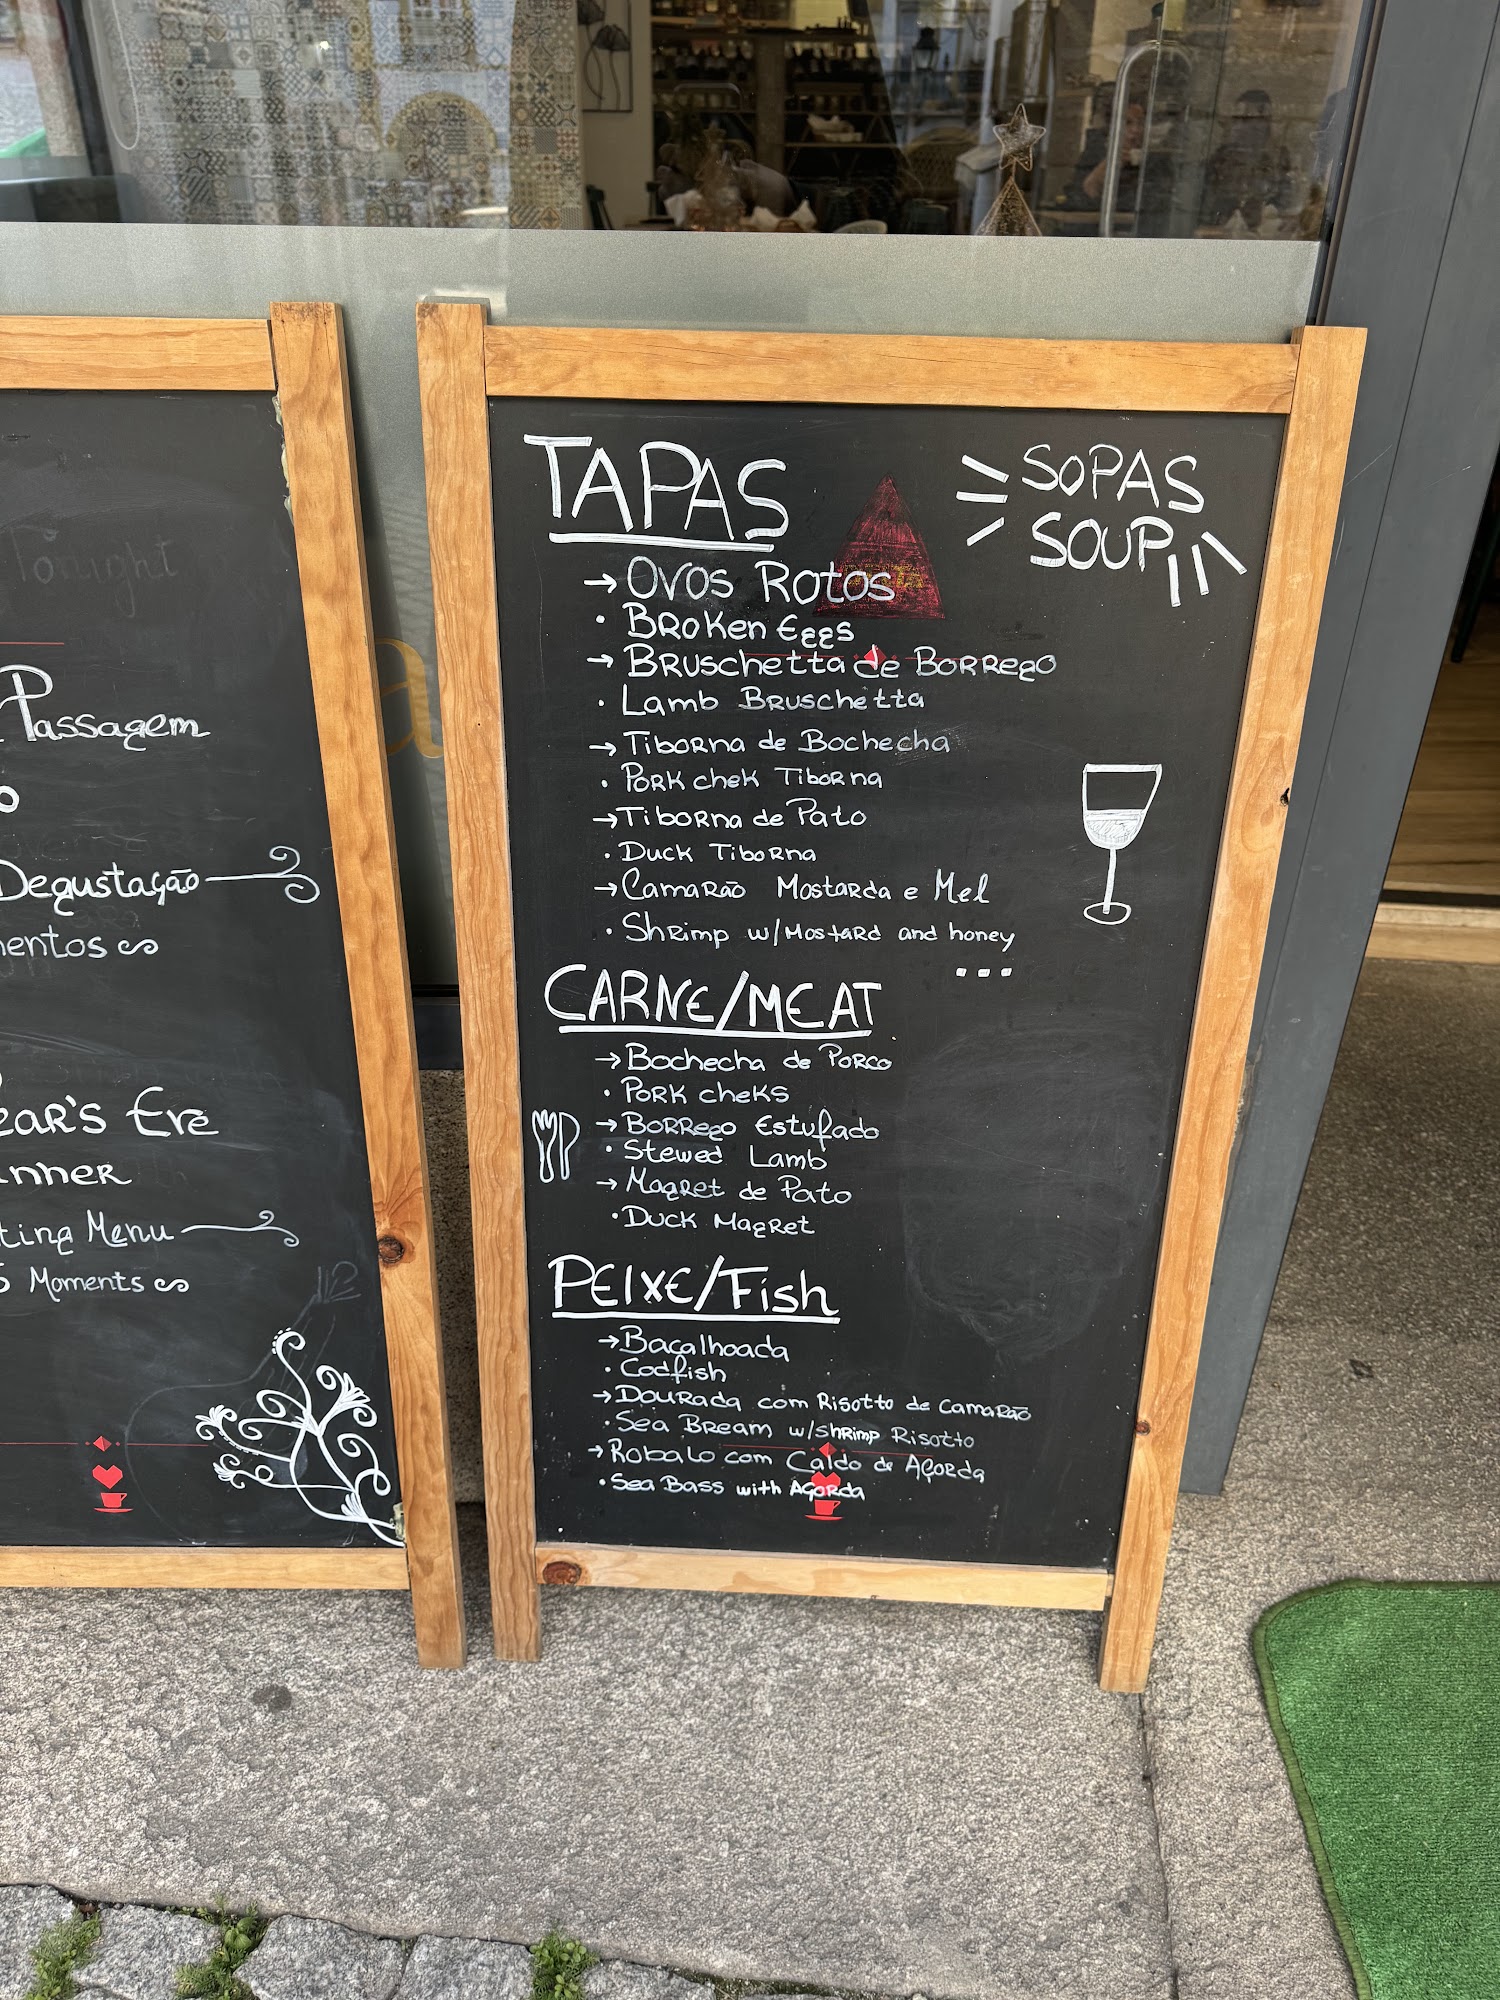 Tonight
Passagem
o
Degustação
mentos
ear's Eve
nner
ting Menu
5 Moments
a
TAPAS
SOPAS
SOUP
→ Ovos Rotos
• Broken Eggs
→ Bruschetta de Borrego
• Lamb Bruschetta
→ Tiborna de Bochecha
• Pork chek Tiborna
→ Tiborna de Pato
• Duck Tiborna
→ Camarão Mostarda e Mel
• Shrimp w/Mostard and honey
...
CARNE/MEAT
→ Bochecha de Porco
• Pork cheks
→ Borrego Estufado
• Stewed Lamb
→ Magret de Pato
• Duck Magret
PEIXE/Fish
→ Bacalhoada
• Codfish
→ Dourada com Risotto de Camarão
• Sea Bream w/shrimp Risotto
→ Robalo com Caldo de Açorda
• Sea Bass with Açorda